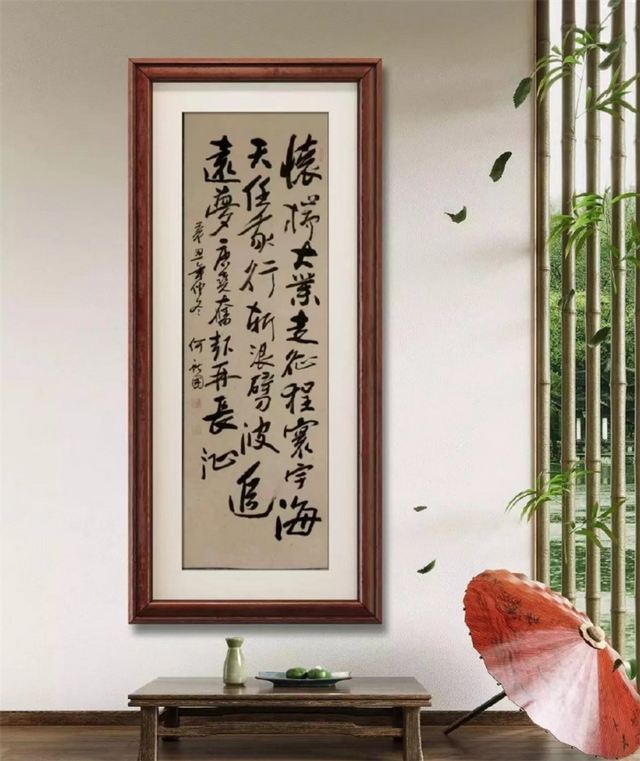 懷揣大業走征程寰宇海
天任我行斬浪劈波追
遠夢奮起再長征
辛丑年仲冬 何國